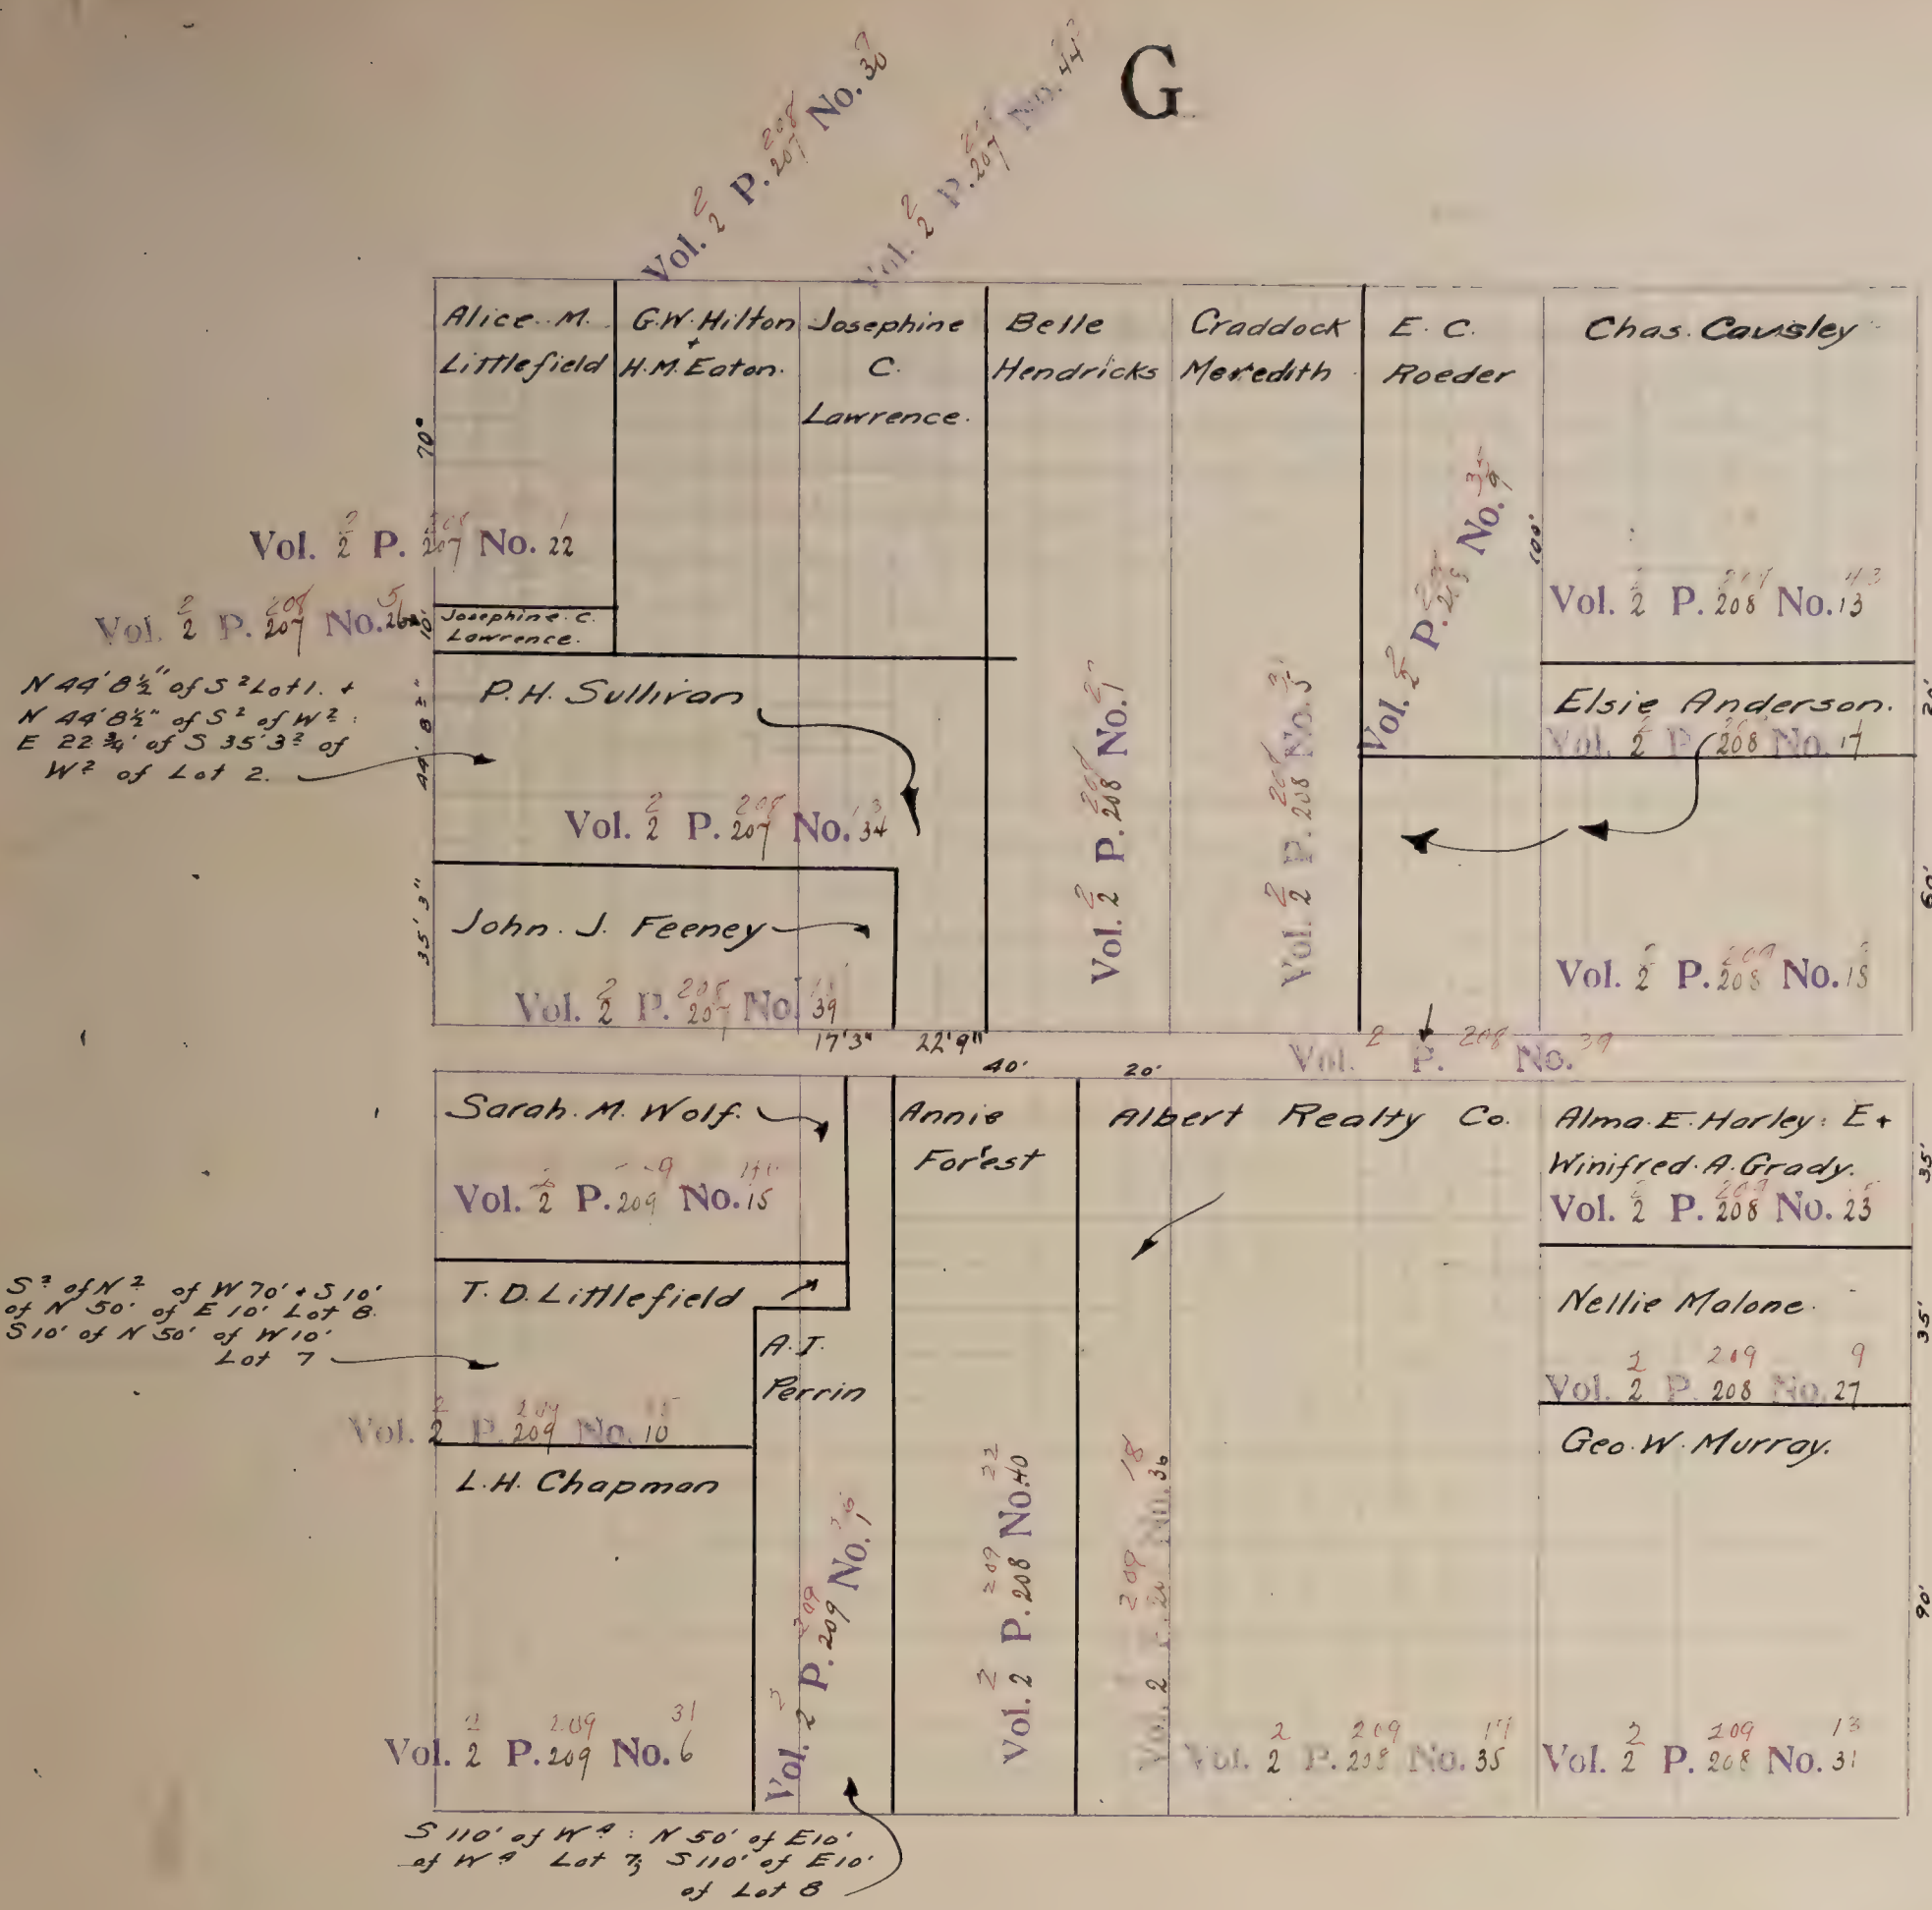 G
Vol. 2 P. 207 No. 30
Vol. 2 P. 207 No. 44
Alice M.
Littlefield
G.W. Hilton
+
H.M. Eaton.
Josephine
C.
Lawrence.
Belle
Hendricks
Craddock
Meredith
E. C.
Roeder
Chas. Causley
70'
100'
Vol. 2 P. 207 No. 22
Vol. 2 P. 207 No. 26
10'
Josephine. C.
Lawrence.
Vol. 2 P. No. 9
Vol. 2 P. 208 No. 13
N 44' 8½" of S 2 Lot 1. +
N 44' 8½" of S 2 of W 2 :
E 22 ¾' of S 35' 3 2 of
W 2 of Lot 2.
44' 8
P.H. Sullivan
Vol. 2 P. 207 No. 34
Vol. 2 P. 208 No. 1
Vol. 2 P. 208 No. 5
Elsie Anderson.
20'
Vol. 2 P. 208 No. 17
60'
35' 3"
John. J. Feeney
Vol. 2 P. 207 No. 39
Vol. 2 P. 208 No. 18
17'3" 22'9"
40' 20'
Vol. 2 P. 208 No. 39
Sarah. M. Wolf.
Vol. 2 P. 209 No. 15
Annie
Forest
Albert Realty Co.
Alma. E. Harley : E +
Winifred. A. Grady.
Vol. 2 P. 208 No. 23
35'
S 2 of N 2 of W 70' + S 10'
of N 50' of E 10' Lot 8.
S 10' of N 50' of W 10'
Lot 7
T. D. Littlefield
A. J.
Perrin
Nellie Malone.
35'
2 209 9
Vol. 2 P. 208 No. 27
Vol. 2 P. 209 No. 10
L.H. Chapman
Geo. W. Murray.
90'
2 209 31
Vol. 2 P. 209 No. 6
Vol. 2 P. 209 No. 1
2 209 22
Vol. 2 P. 208 No. 40
209 18
Vol. 2 No. 36
2 209 17
Vol. 2 P. 208 No. 35
2 209 13
Vol. 2 P. 208 No. 31
S 110' of W 4 : N 50' of E 10'
of W 4 Lot 7; S 110' of E 10'
of Lot 8